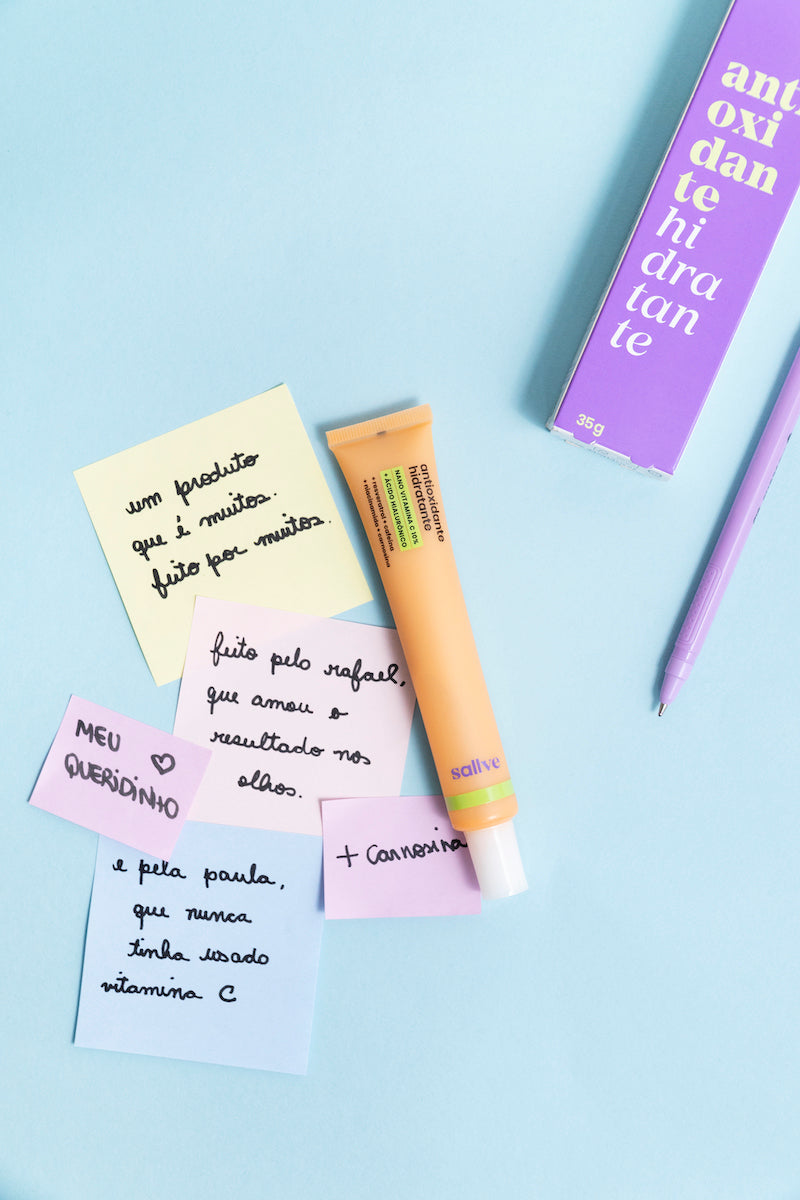 anti
oxi
dan
te
hi
dra
tan
te
35g
um produto
que é muitos.
feito por muitos.
antioxidante
hidratante
NANO VITAMINA C 10%
+ ÁCIDO HIALURÔNICO
+ resveratrol + cafeína
+ niacinamida + carnosina
sallve
feito pelo rafael,
que amou o
resultado nos
olhos.
MEU ♡
QUERiDiNHO
+ Carnosina
e pela paula,
que nunca
tinha usado
vitamina C